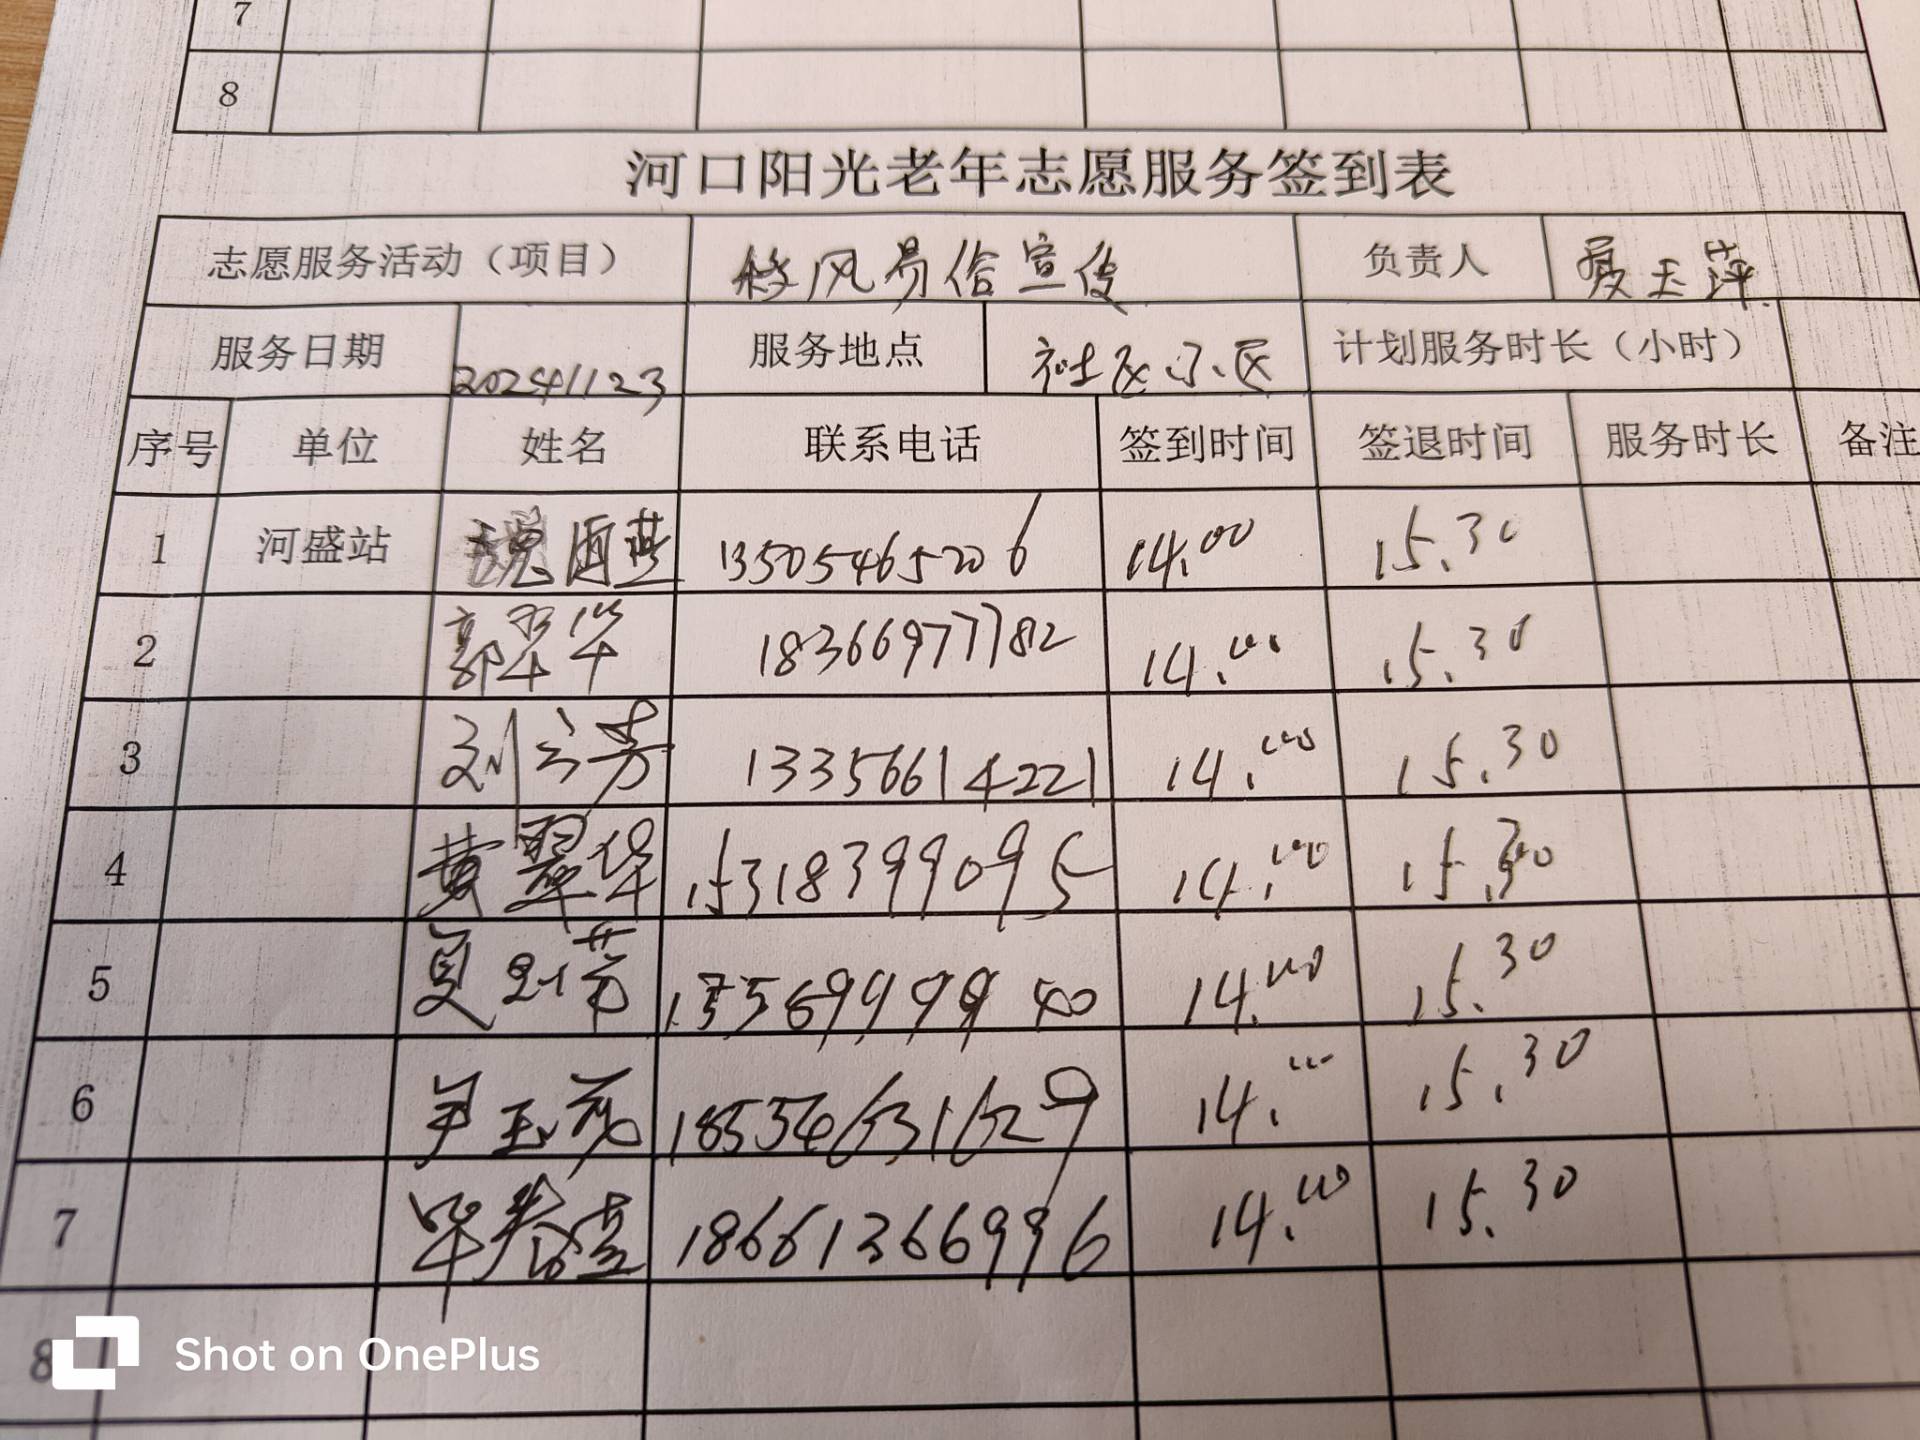 7
8
河口阳光老年志愿服务签到表
志愿服务活动（项目） 移风易俗宣传 负责人 聂玉萍
服务日期 20241123 服务地点 社区小区 计划服务时长（小时）
序号 单位 姓名 联系电话 签到时间 签退时间 服务时长 备注
1 河盛站 13505465206 14.00 15.30
2 郭翠华 18366977782 14.00 15.30
3 刘云芳 13356614221 14.00 15.30
4 黄翠华 15318399095 14.00 15.30
5 14.00 15.30
6 14.00 15.30
7 18661366996 14.00 15.30
8
Shot on OnePlus